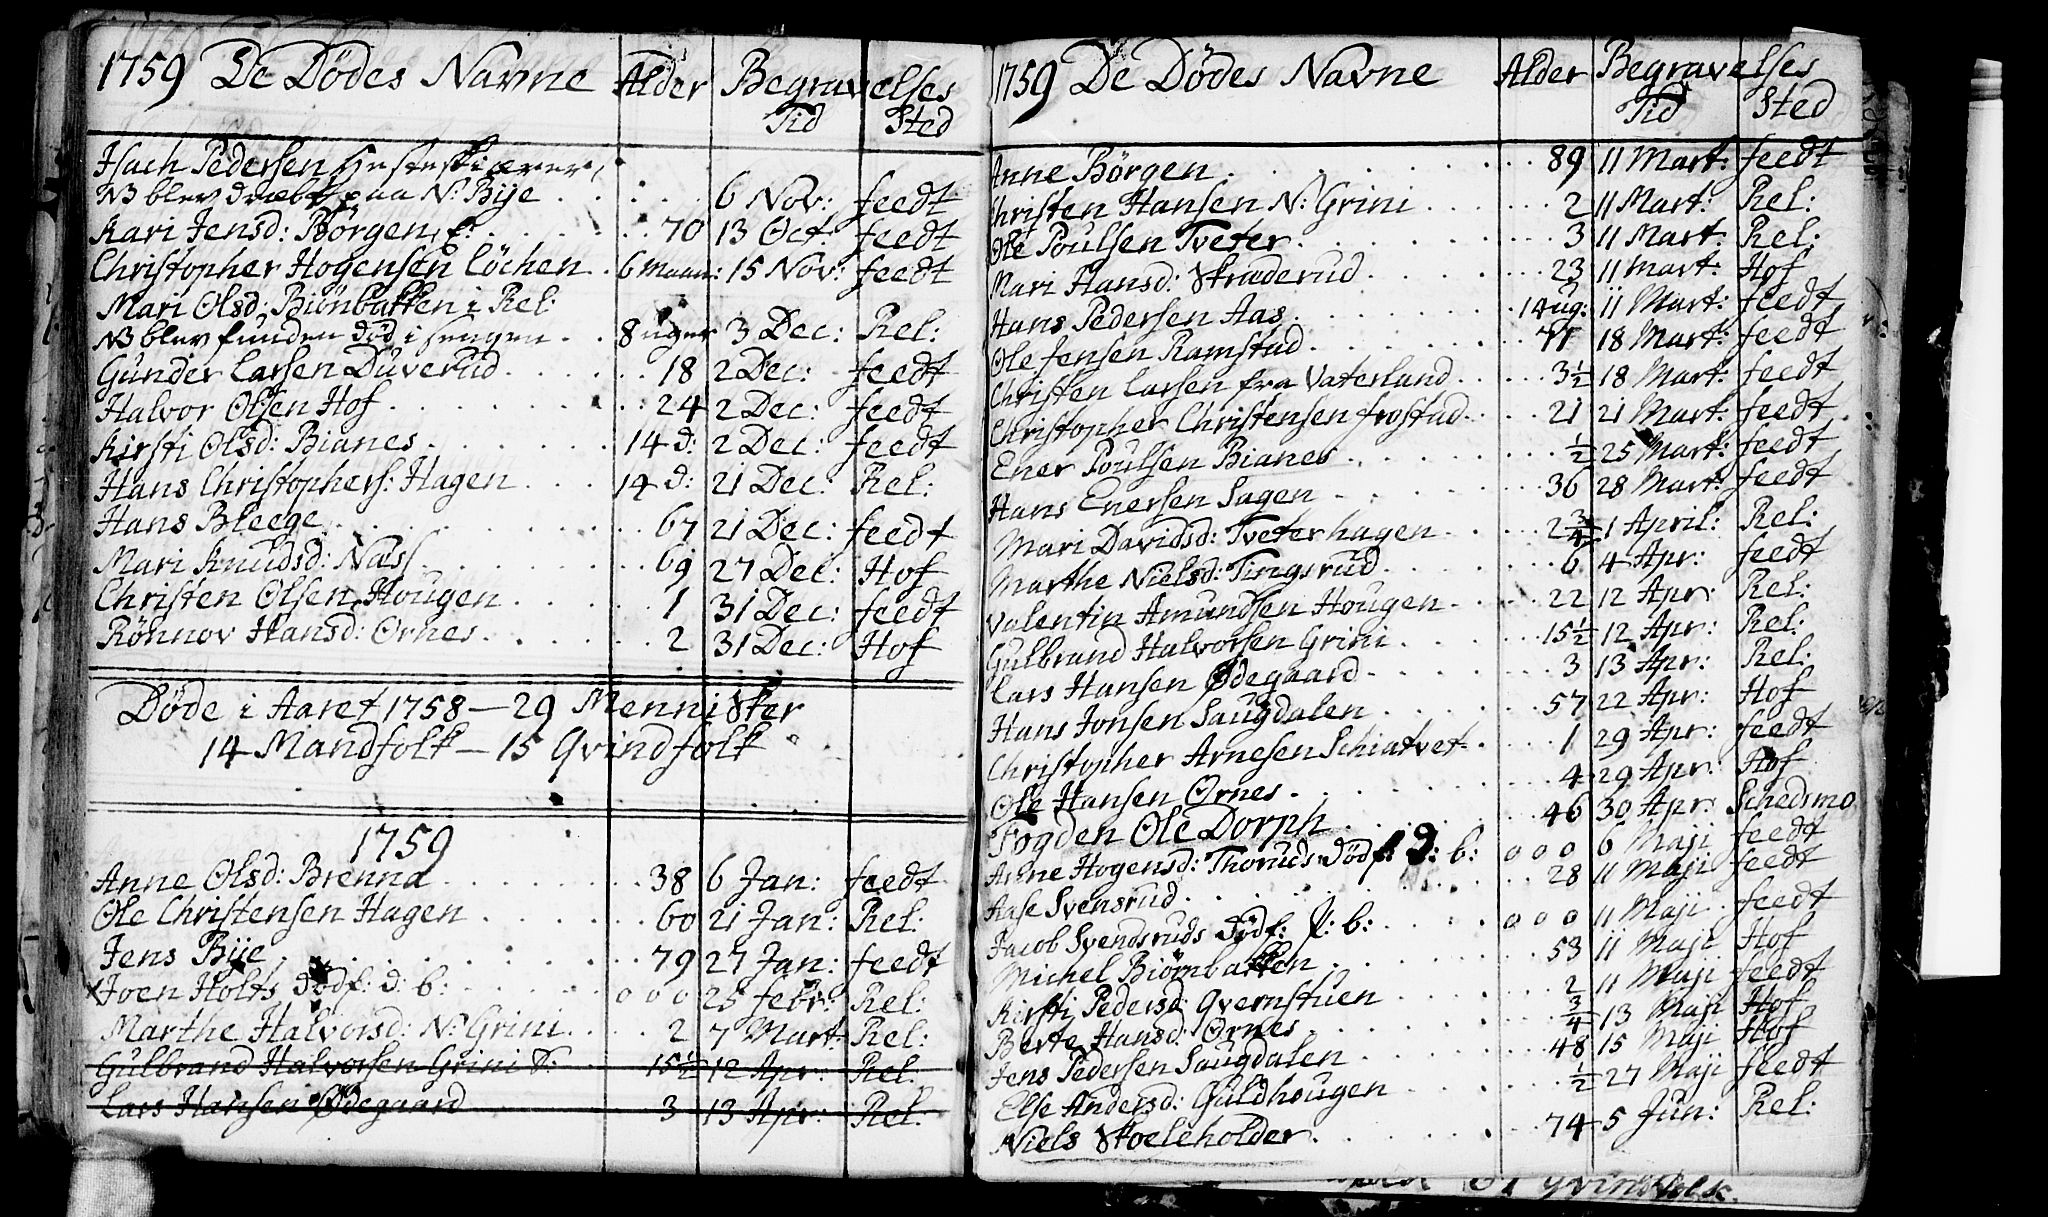 1759 De Dödes Navne Alder Begravelses
Tid Sted
Isach Pedersen Hesteskierer,
NB blev dræbt paa N: Bije . . . . . . 6 Nov: feedt
Kari Jensd: Börgen, f: . . . . . 70 13 Oct: feedt
Christopher Hogensen Löchen . 6 Maan: 15 Nov: feedt
Mari Olsd: Biönbakken i Rel:
NB blev funden död i sengen . . 8 uger 3 Dec: Rel:
Gunder Larsen Duverud . . . . . 18 2 Dec: feedt
Halvor Olsen Hof . . . . . . . 24 2 Dec: feedt
Kirsti Olsd: Bianes . . . . . . 14 d: 2 Dec: feedt
Hans Christophers: Hagen . . . . 14 d: 21 Dec: Rel:
Hans Bleege . . . . . . . . 67 21 Dec: feedt
Mari Knudsd: Næss . . . . . . 69 27 Dec: Hof
Christen Olsen Hougen . . . . . 1 31 Dec: feedt
Rönnov Hansd: Ornes . . . . . 2 31 Dec: Hof
Döde i Aaret 1758 — 29 Mennisker
14 Mandfolk — 15 Qvindfolk
1759
Anne Olsd: Brenna . . . . . . 38 6 Jan: feedt
Ole Christensen Hagen . . . . . 60 21 Jan: Rel:
Jens Bije . . . . . . . . . 79 27 Jan: feedt
Joen Holts dödf: d: b: . . . . . o o o 25 febr: Rel:
Marthe Halvorsd: N: Grini . . . . 2 7 Mart: Rel:
Gulbrand Halvorsen Grini . . 15½ 12 Apr: Rel:
Lars Hansen Ødegaard 3 13 Apr: Rel:
1759 De Dödes Navne Alder Begravelses
Tid Sted
Anne Börgen . . . . . . . . 89 11 Mart: feedt
Christen Hansen N: Grini . . . . . 2 11 Mart: Rel:
Ole Poulsen Tveter . . . . . . . 3 11 Mart: Rel:
Mari Hansd: Skruderud . . . . . . 23 11 Mart: Hof
Hans Pedersen Aas . . . . . . . 14 ug: 11 Mart: feedt
Ole Jensen Ramstad . . . . . . 77 18 Mart: feedt
Christen Larsen fra Vaterland . . . . 3½ 18 Mart: feedt
Christopher Christensen frostad . . . 21 21 Mart: feedt
Ener Poulsen Bianes . . . . . . ½ 25 Mart: feedt
Hans Enersen Sagen . . . . . . 36 28 Mart: feedt
Mari Davidsd: Tveterhagen . . . . 2¾ 1 April: Rel:
Marthe Nielsd: Tingsrud . . . . . 6 4 Apr: feedt
Valentin Amundsen Hougen . . . . 22 12 Apr: Rel:
Gulbrand Halvorsen Grini . . . . 15½ 12 Apr: Rel:
Lars Hansen Ødegaard . . . . . . 3 13 Apr: Rel:
Hans Jonsen Saugdalen . . . . . . 57 22 Apr: Hof
Christopher Arnesen Schiatvet . . . 1 29 Apr: feedt
Ole Hansen Ornes . . . . . . . 4 29 Apr: Hof
Fogden Ole Dorph . . . . . . . 46 30 Apr: Schedsmo
Anne Hogensd: Thoruds dödf: d: b: o o o 6 Maji feedt
Aase Svensrud . . . . . . . 28 11 Maji feedt
Jacob Svendsruds dödf: P: b: . . . . o o o 11 Maji feedt
Michel Biörnbakken . . . . . . 53 11 Maji Hof
Kirsti Pedersd: Qvernstuen . . . . . 2 11 Maji feedt
Berte Hansd: Ornes . . . . . . ¾ 13 Maji Hof
Jens Pedersen Saugdalen . . . . . 48 15 Maji Hof
Else Andersd: Guldhougen . . . . . ½ 27 Maji feedt
Niels Skoeleholder . . . . . . . 74 5 Jun: Rel:
Qvindfolk.